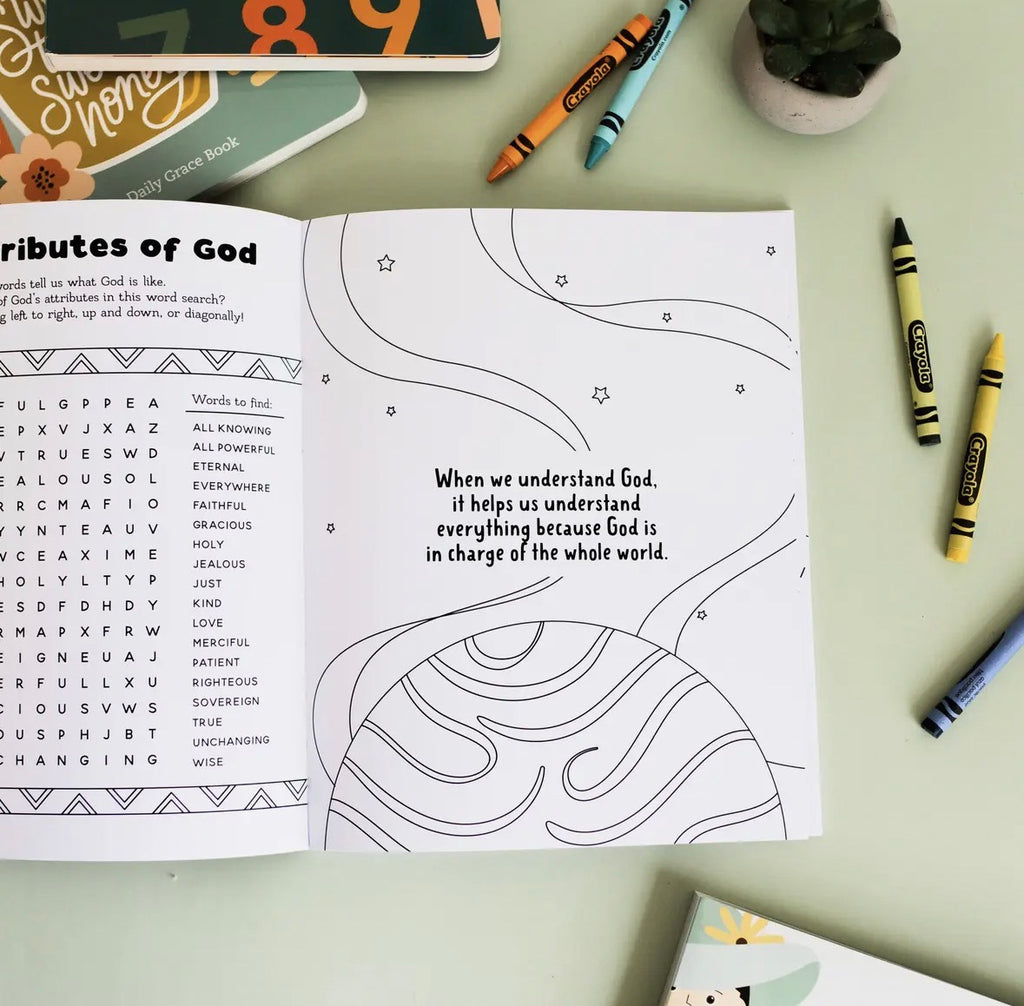 7 8 9
Sw
hone
Daily Grace Book
Crayola
Crayola
Crayola.com
ributes of God
words tell us what God is like.
of God's attributes in this word search?
g left to right, up and down, or diagonally!
F U L G P P E A
E P X V J X A Z
V T R U E S W D
E A L O U S O L
R R C M A F I O
Y Y N T E A U V
W C E A X I M E
H O L Y L T Y P
E S D F D H D Y
R M A P X F R W
E I G N E U A J
E R F U L L X U
C I O U S V W S
O U S P H J B T
C H A N G I N G
Words to find:
ALL KNOWING
ALL POWERFUL
ETERNAL
EVERYWHERE
FAITHFUL
GRACIOUS
HOLY
JEALOUS
JUST
KIND
LOVE
MERCIFUL
PATIENT
RIGHTEOUS
SOVEREIGN
TRUE
UNCHANGING
WISE
When we understand God,
it helps us understand
everything because God is
in charge of the whole world.
Crayola
Crayola